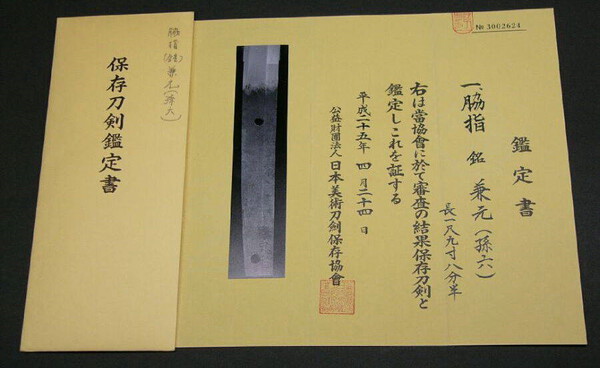 № 3002624
鑑定書
一、脇指 銘 兼元(孫六)
長一尺九寸八分半
右は當協會に於て審査の結果保存刀剣と
鑑定しこれを証する
平成二十五年 四月二十四日
公益財團法人 日本美術刀劍保存協會
保存刀剣鑑定書
脇指(銘)兼元(孫六)